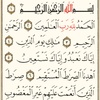 بِسْمِ اللَّهِ الرَّحْمَٰنِ الرَّحِيمِ
الْحَمْدُ لِلَّهِ رَبِّ الْعَالَمِينَ الرَّحْمَٰنِ
الرَّحِيمِ مَالِكِ يَوْمِ الدِّينِ
إِيَّاكَ نَعْبُدُ وَإِيَّاكَ نَسْتَعِينُ
اهْدِنَا الصِّرَاطَ الْمُسْتَقِيمَ صِرَاطَ
الَّذِينَ أَنْعَمْتَ عَلَيْهِمْ غَيْرِ الْمَغْضُوبِ